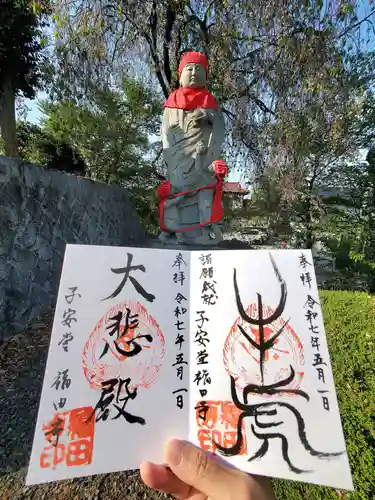 奉拝 令和七年五月一日
諸願成就 子安堂 福田寺
奉拝 令和七年五月一日
大悲殿
子安堂 福田寺